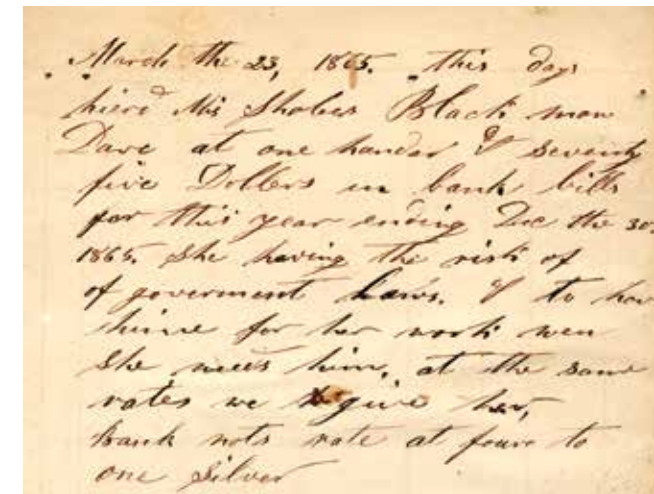 March the 23, 1865. this day
hierd Mis Sholers Black man
Dave at one hunder & seventy
five Dollers in bank bills
for this year ending Dec the 30.
1865. She having the risk of
of goverment Laws. & to have
himme for her work wen
She nees him, at the same
rates we to give her,
Bank nots rate at foure to
one Silver